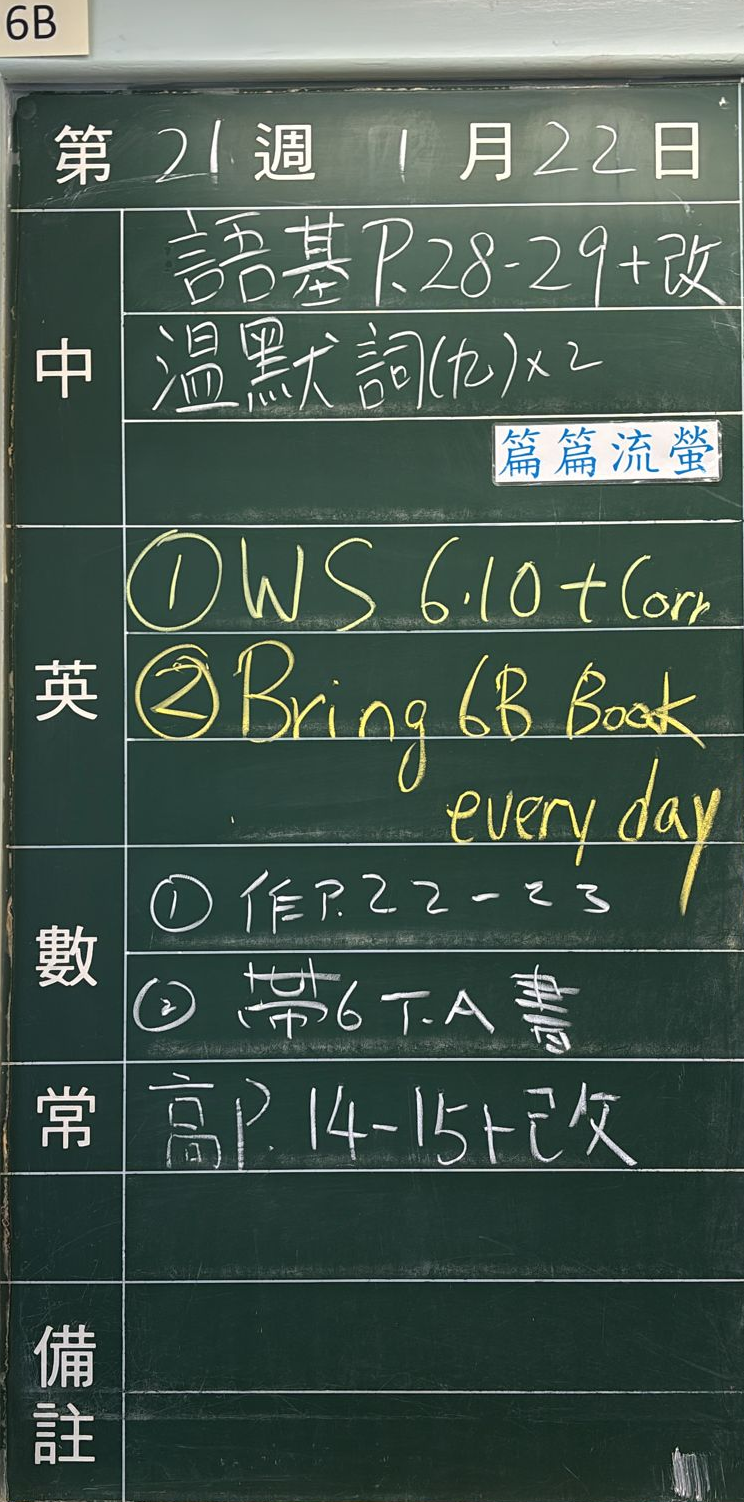 6B
第 21 週 1 月 22 日
中
語基 P.28-29+改
溫默詞(九)x2
篇篇流螢
英
① WS 6.10 + Corr
② Bring 6B Book
every day
數
① 作P.22-23
② 帶6下A書
常
高P.14-15+改
備註